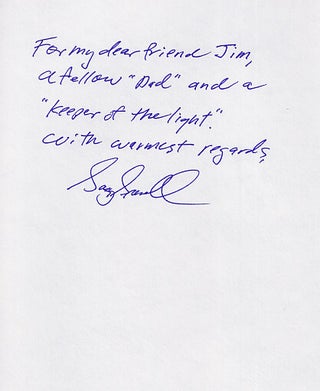 For my dear friend Jim,
a fellow "Dad" and a
"keeper of the light".
with warmest regards,